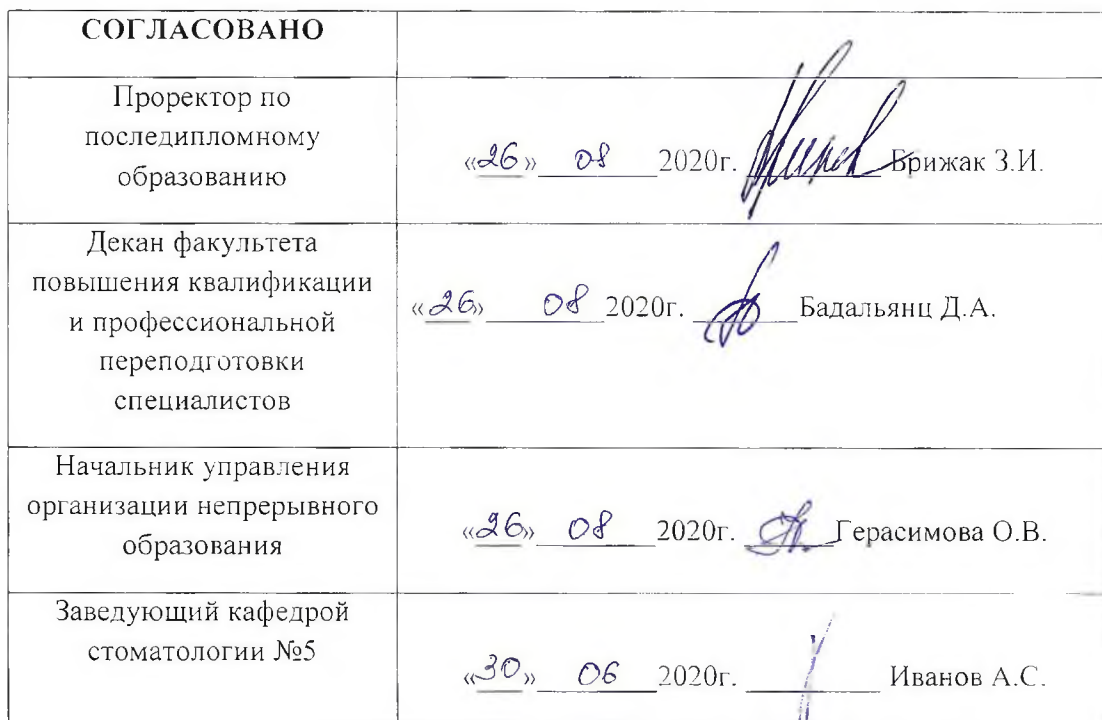 СОГЛАСОВАНО
Проректор по
последипломному
образованию
«26» 08 2020г. Брижак З.И.
Декан факультета
повышения квалификации
и профессиональной
переподготовки
специалистов
«26» 08 2020г. Бадальянц Д.А.
Начальник управления
организации непрерывного
образования
«26» 08 2020г. Герасимова О.В.
Заведующий кафедрой
стоматологии №5
«30» 06 2020г. Иванов А.С.